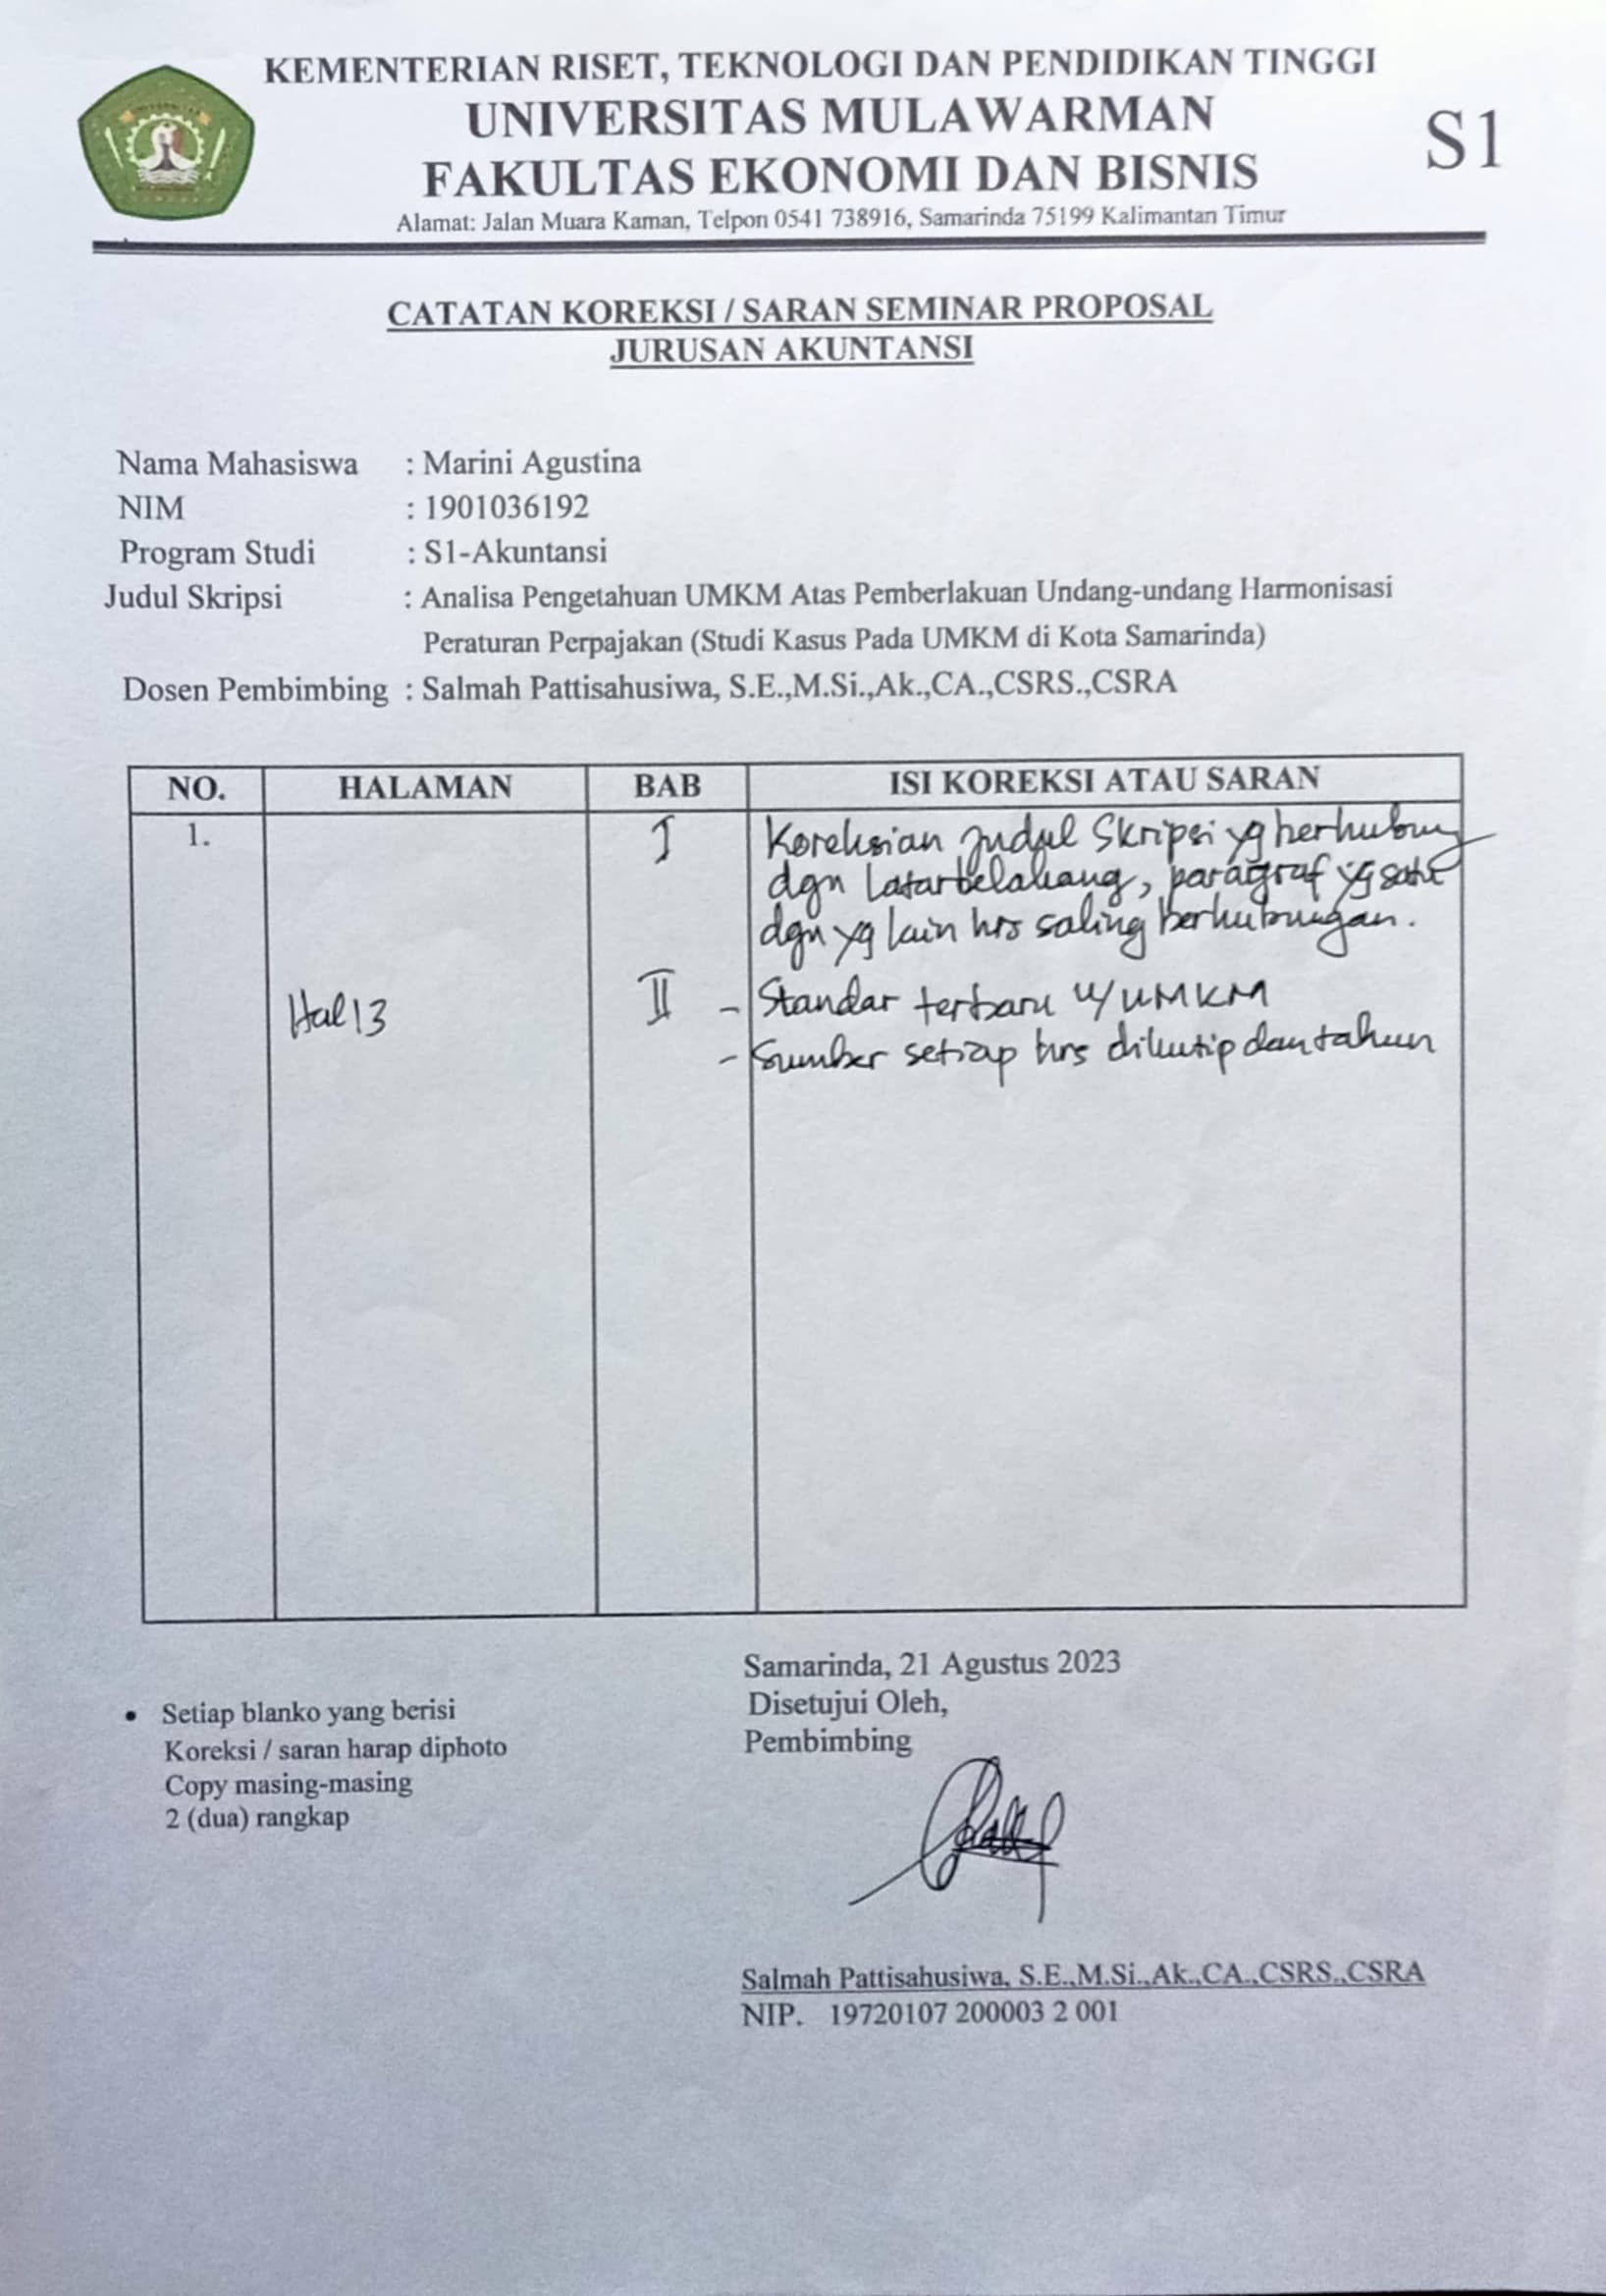 KEMENTERIAN RISET, TEKNOLOGI DAN PENDIDIKAN TINGGI
UNIVERSITAS MULAWARMAN
FAKULTAS EKONOMI DAN BISNIS
S1
Alamat: Jalan Muara Kaman, Telpon 0541 738916, Samarinda 75199 Kalimantan Timur
CATATAN KOREKSI / SARAN SEMINAR PROPOSAL
JURUSAN AKUNTANSI
Nama Mahasiswa : Marini Agustina
NIM : 1901036192
Program Studi : S1-Akuntansi
Judul Skripsi : Analisa Pengetahuan UMKM Atas Pemberlakuan Undang-undang Harmonisasi
Peraturan Perpajakan (Studi Kasus Pada UMKM di Kota Samarinda)
Dosen Pembimbing : Salmah Pattisahusiwa, S.E.,M.Si.,Ak.,CA.,CSRS.,CSRA
NO. HALAMAN BAB ISI KOREKSI ATAU SARAN
1. I Koreksian judul Skripsi yg berhubung
dgn Latarbelakang, paragraf yg satu
dgn yg lain hrs saling berhubungan.
Hal 13 II - Standar terbaru u/ UMKM
- Sumber setiap hrs dikutip dan tahun
Samarinda, 21 Agustus 2023
Disetujui Oleh,
Pembimbing
• Setiap blanko yang berisi
Koreksi / saran harap diphoto
Copy masing-masing
2 (dua) rangkap
Salmah Pattisahusiwa, S.E.,M.Si.,Ak.,CA.,CSRS.,CSRA
NIP. 19720107 200003 2 001